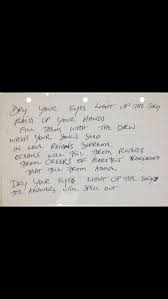 DRY YOUR EYES LIGHT UP THE SKY
RAISE UP YOUR HANDS
FILL THEM WITH THE DEW
WHILST YOUR SOUL'S SEED
IN LOVE REIGNS SUPREME
OCEANS WILL FILL FROM RIVERS
FROM CREEKS OF HEARTFELT TEARDROPS
THAT FELL FROM ABOVE
DRY YOUR EYES LIGHT UP THE SKY
THE ANSWERS WILL SPILL OUT